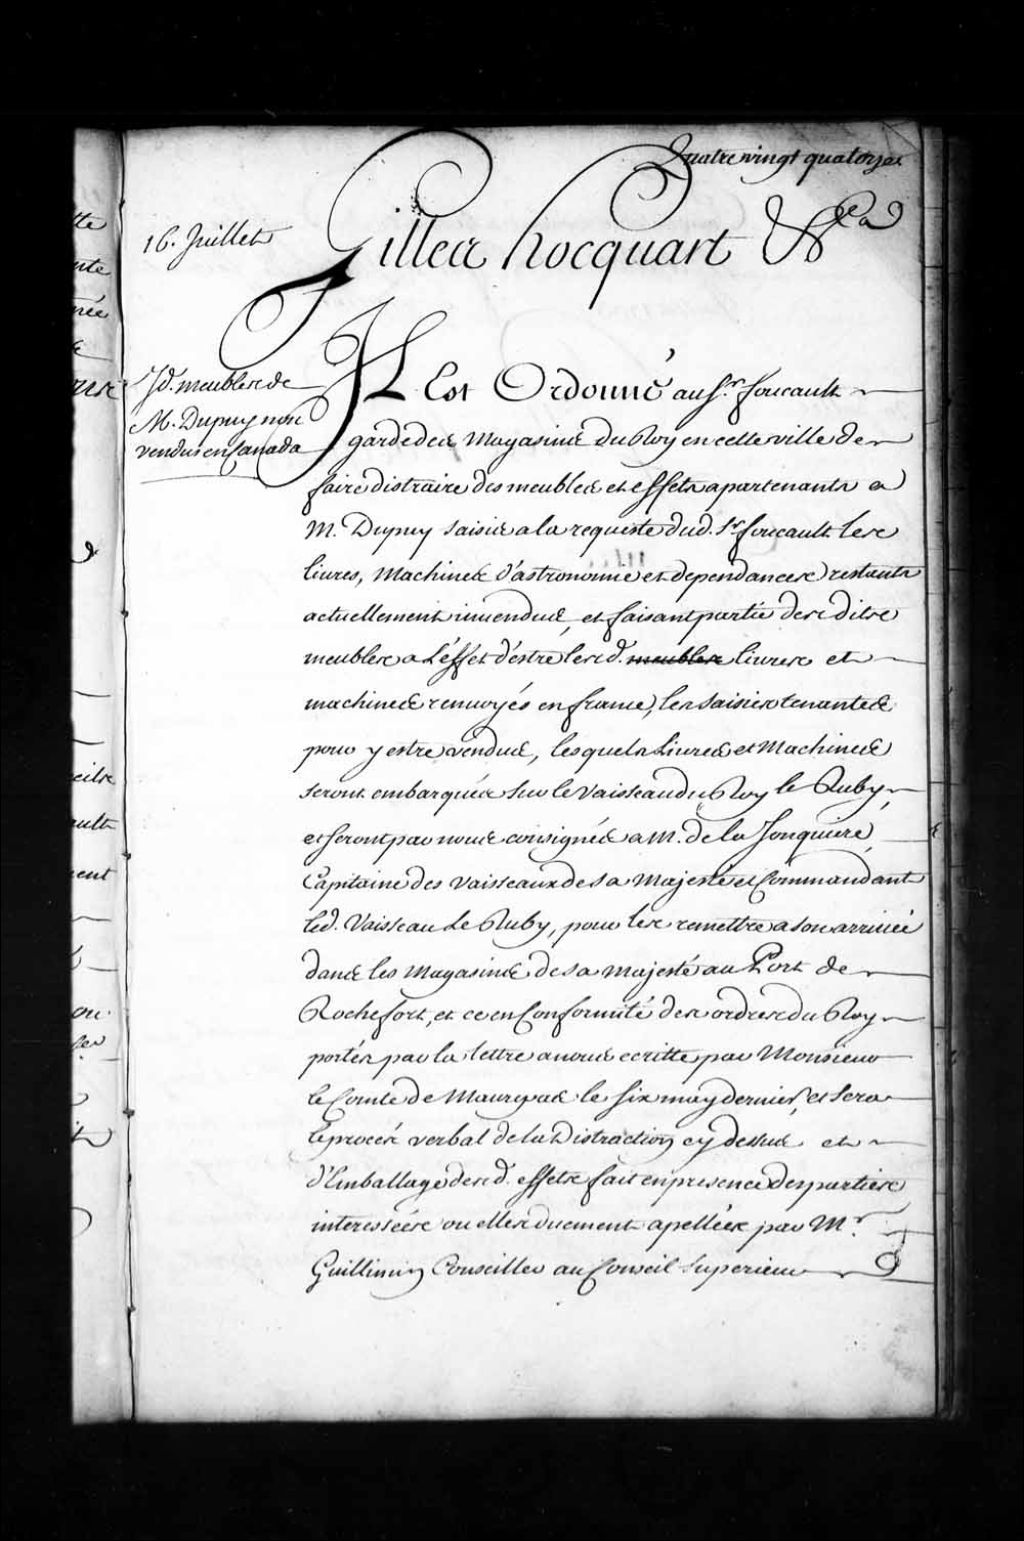 Quatre vingt quatorze
16. Juillet
Gilles hocquart &ca
Jd. meubles de
M. Dupuy non
vendus en Canada
Il Est Ordonné au Sr. foucault
garde des Magasins du Roy en cette ville de
faire distraire des meubles et effets apartenants a
M. Dupuy saisis a la requeste dud. Sr. foucault les
livres, Machines d'astronomie et dependances restants
actuellement invendus, et faisant partie des dits
meubles a L'effet d'estre lesd. meubles livres et
machines renvoyés en france, les saisies tenantes
pour y estre vendus, lesquels Livres et Machines
seront embarqués sur le Vaisseau du Roy le Ruby,
et seront par nous consignés a M. de la Jonquiere,
Capitaine des Vaisseaux de sa Majesté et Commandant
led. Vaisseau Le Ruby, pour les remettre a son arrivée
dans les Magasins de sa majesté au Port de
Rochefort, et ce en Conformité des ordres du Roy
portés par la lettre a nous ecritte par Monsieur
le Comte de Maurepas le six may dernier, et sera
le procés verbal de la Distraction cy dessus et
d'Emballage desd. effets fait en presence des parties
interessées ou elles duement apellées par Mr.
Guillimin Conseiller au Conseil Superieur